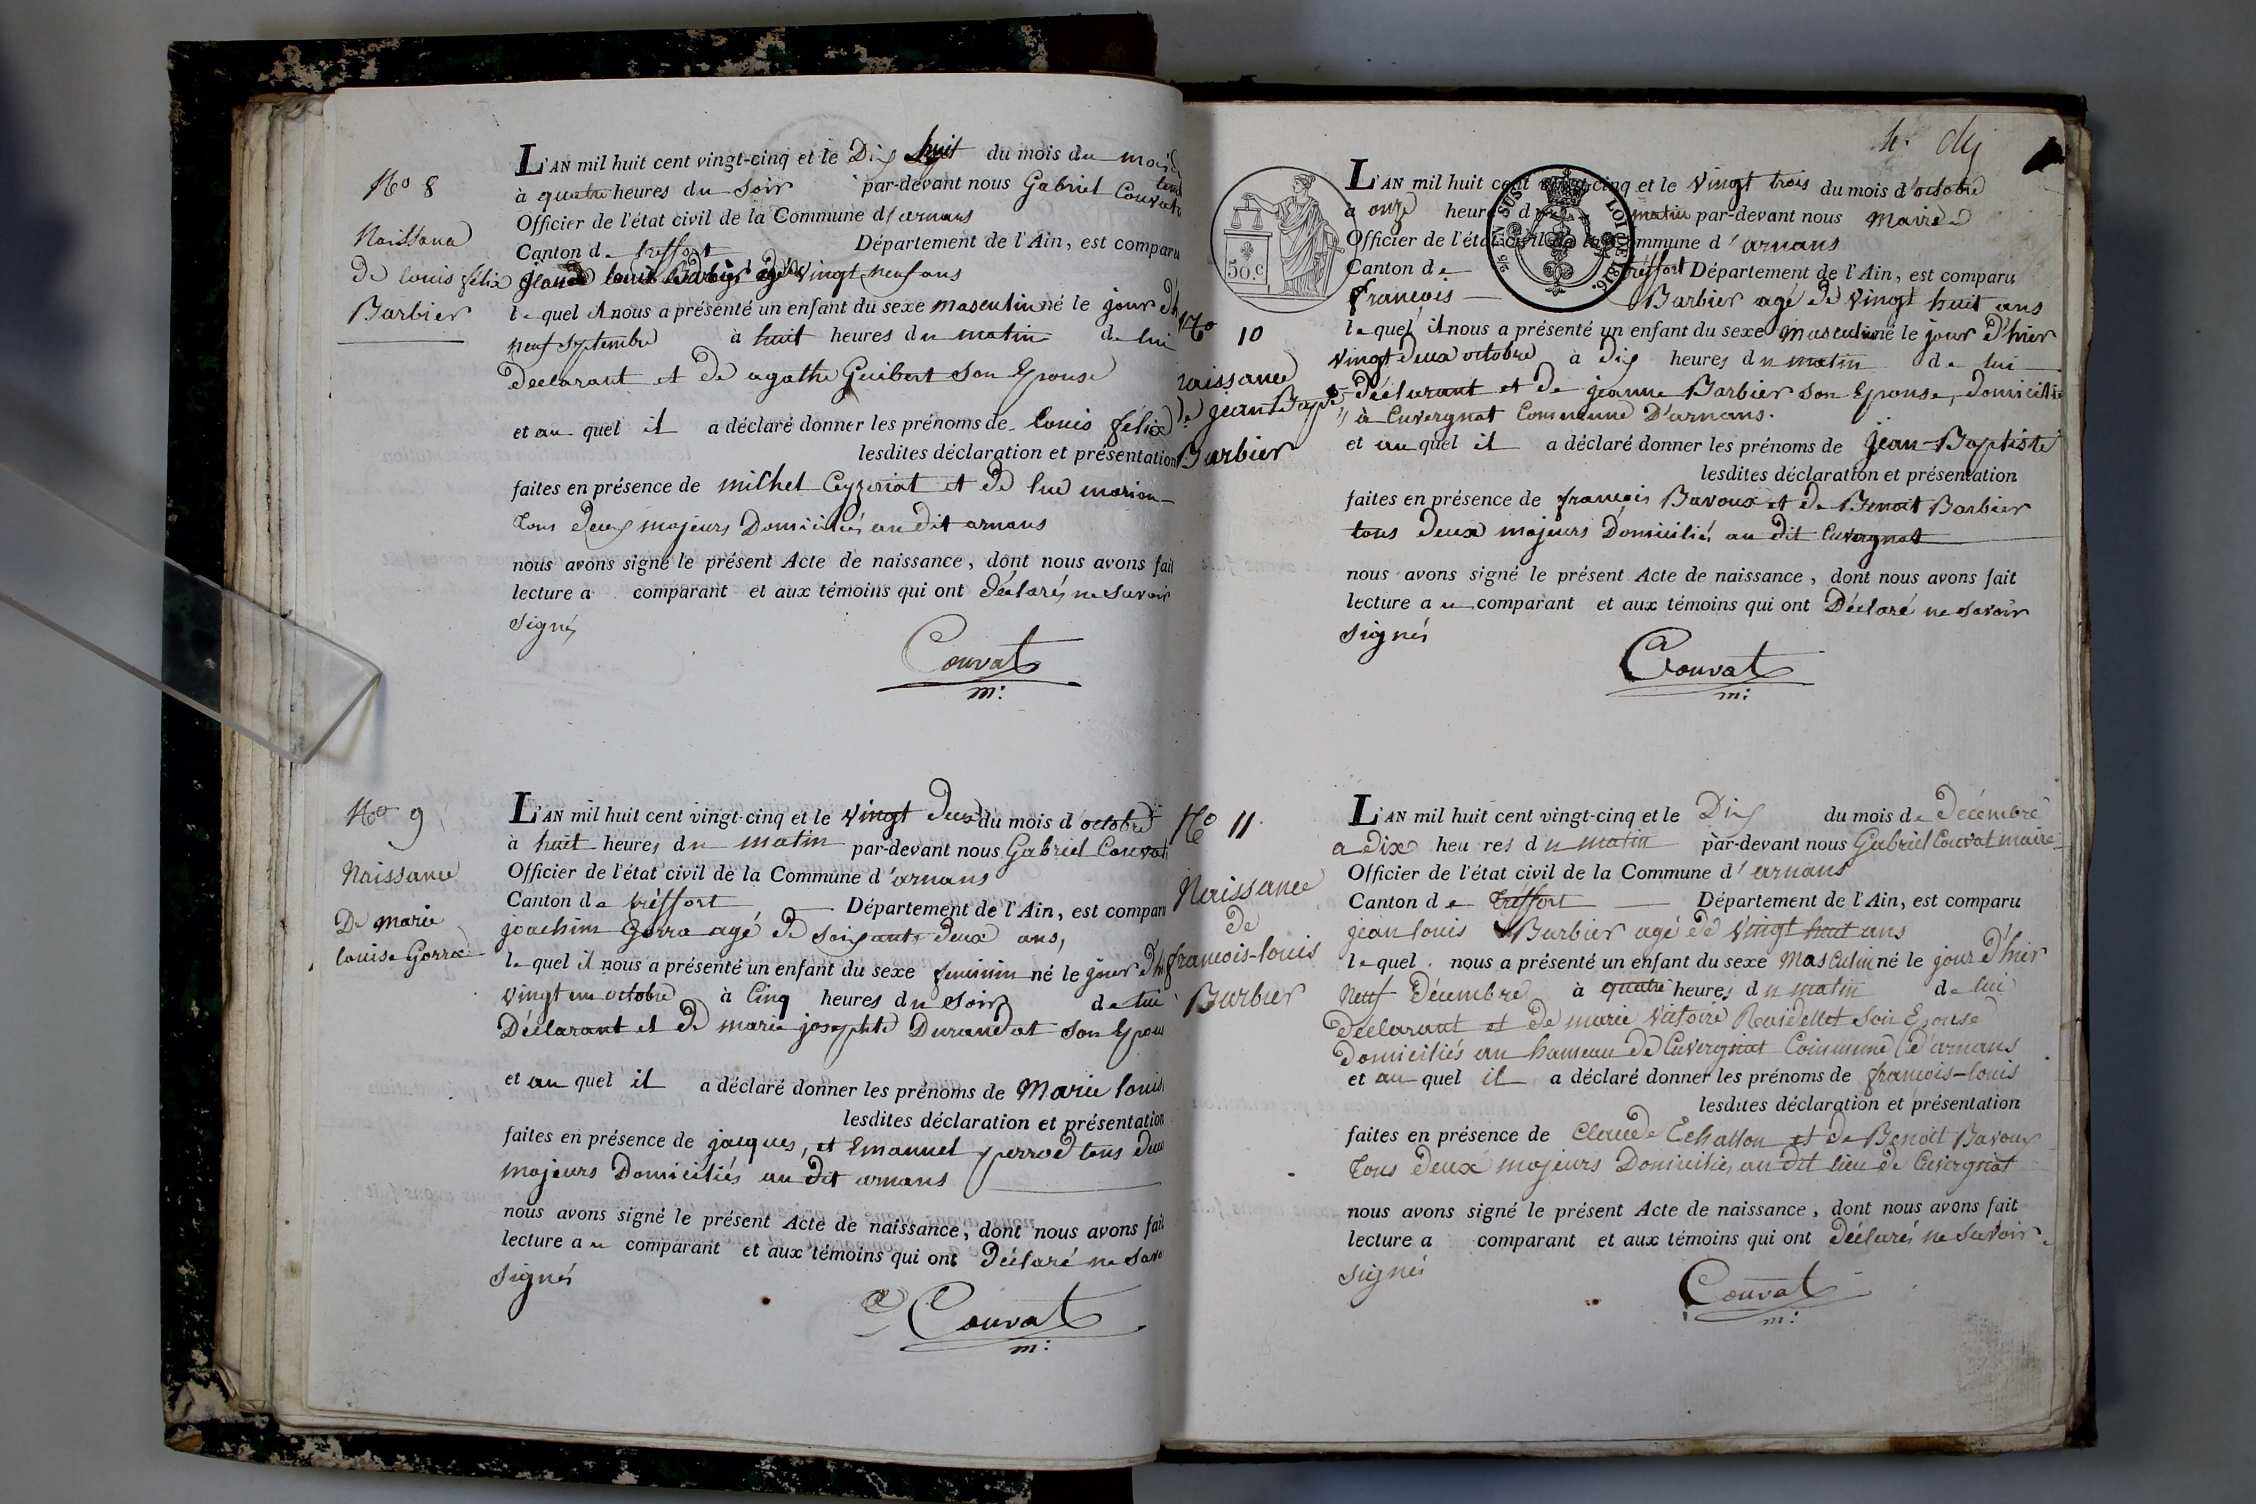 No 8
Naissance
de louis félix
Barbier
L'AN mil huit cent vingt-cinq et le Dix huit du mois du mois
à quatre heures du soir par-devant nous Gabriel Couvat
Officier de l'état civil de la Commune d'arnans
Canton de treffort Département de l'Ain, est comparu
louis Barbier agé de vingt neuf ans
lequel il nous a présenté un enfant du sexe masculin né le jour d'h
neuf septembre à huit heures du matin de lui
declarant et de agathe Guibert son Epouse
et au quel il a déclaré donner les prénoms de louis félix
lesdites déclaration et présentation
faites en présence de michel Ceyzeriat et de luc marion
tous deux majeurs Domiciliés au dit arnans
nous avons signé le présent Acte de naissance, dont nous avons fait
lecture a comparant et aux témoins qui ont déclarés ne savoir
signés
Couvat
m:
No 9
Naissance
De marie
louise Gorra
L'AN mil huit cent vingt-cinq et le vingt deux du mois d'octobre
à huit heures du matin par-devant nous Gabriel Couvat
Officier de l'état civil de la Commune d'arnans
Canton de tréffort Département de l'Ain, est comparu
joachim Gorra agé de soixante deux ans,
lequel il nous a présenté un enfant du sexe feminin né le jour d'h
vingt un octobre à Cinq heures du soir de lui
Déclarant et de marie josephte Durandat son Epou
et au quel il a déclaré donner les prénoms de Marie louis
lesdites déclaration et présentation
faites en présence de jacques, et Emanuel perrod tous deux
majeurs Domiciliés au dit arnans
nous avons signé le présent Acte de naissance, dont nous avons fait
lecture au comparant et aux témoins qui ont Déclaré ne savo
signés
Couvat
m:
EN SUS
LOI DE 1816.
50.c
No 10
naissance
de jean Bapte
Barbier
L'AN mil huit cent vingt-cinq et le vingt trois du mois d'octobre
à onze heures du matin par-devant nous maire
Officier de l'état civil de la Commune d'arnans
Canton de tréffort Département de l'Ain, est comparu
françois Barbier agé de vingt huit ans
lequel il nous a présenté un enfant du sexe masculin né le jour d'hier
vingt deux octobre à dix heures du matin de lui
déclarant et de jeanne Barbier son Epouse, domiciliés
à Cuvergnat Commune D'arnans.
et au quel il a déclaré donner les prénoms de jean-Baptiste
lesdites déclaration et présentation
faites en présence de françois Bavoux et de Benoit Barbier
tous deux majeurs Domiciliés au dit Cuvergnat
nous avons signé le présent Acte de naissance, dont nous avons fait
lecture au comparant et aux témoins qui ont Déclaré ne savoir
signés
Couvat
m:
No 11
Naissance
de
françois-louis
Barbier
L'AN mil huit cent vingt-cinq et le Dix du mois de décembre
a dix heures du matin par-devant nous Gabriel Couvat maire
Officier de l'état civil de la Commune d'arnans
Canton de tréffort Département de l'Ain, est comparu
jean louis Barbier agé de vingt huit ans
lequel nous a présenté un enfant du sexe masculin né le jour d'hier
neuf décembre à quatre heures du matin de lui
déclarant et de marie Victoire son Epouse
domiciliés au hameau de Cuvergnat Commune d'arnans
et au quel il a déclaré donner les prénoms de françois-louis
lesdites déclaration et présentation
faites en présence de Claude Echallon et de Benoit Bavoux
tous deux majeurs Domiciliés au dit lieu de Cuvergnat
nous avons signé le présent Acte de naissance, dont nous avons fait
lecture a comparant et aux témoins qui ont déclarés ne savoir
signés
Couvat
m: